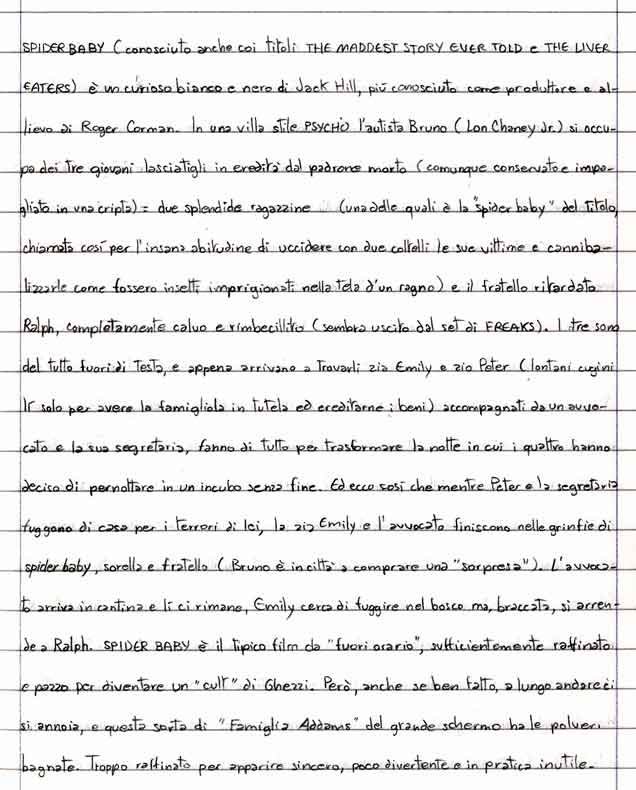 SPIDER BABY (conosciuto anche coi titoli THE MADDEST STORY EVER TOLD e THE LIVER
EATERS) è un curioso bianco e nero di Jack Hill, più conosciuto come produttore e al-
lievo di Roger Corman. In una villa stile PSYCHO l'autista Bruno (Lon Chaney Jr.) si occu-
pa dei tre giovani lasciatigli in eredità dal padrone morto (comunque conservato e impa-
gliato in una cripta) = due splendide ragazzine (una delle quali è la "spider baby" del titolo,
chiamata così per l'insana abitudine di uccidere con due coltelli le sue vittime e canniba-
lizzarle come fossero insetti imprigionati nella tela d'un ragno) e il fratello ritardato
Ralph, completamente calvo e rimbecillito (sembra uscito dal set di FREAKS). I tre sono
del tutto fuori di testa, e appena arrivano a trovarli zia Emily e zio Peter (lontani cugini
lì solo per avere la famigliola in tutela ed ereditarne i beni) accompagnati da un avvo-
cato e la sua segretaria, fanno di tutto per trasformare la notte in cui i quattro hanno
deciso di pernottare in un incubo senza fine. Ed ecco sosì che mentre Peter e la segretaria
fuggono di casa per i terrori di lei, la zia Emily e l'avvocato finiscono nelle grinfie di
spider baby, sorella e fratello (Bruno è in città a comprare una "sorpresa"). L'avvoca-
to arriva in cantina e lì ci rimane, Emily cerca di fuggire nel bosco ma, braccata, si arren-
de a Ralph. SPIDER BABY è il tipico film da "fuori orario", sufficientemente raffinato
e pazzo per diventare un "cult" di Ghezzi. Però, anche se ben fatto, a lungo andare ci
si annoia, e questa sorta di "Famiglia Addams" del grande schermo ha le polveri
bagnate. Troppo raffinato per apparire sincero, poco divertente e in pratica inutile.